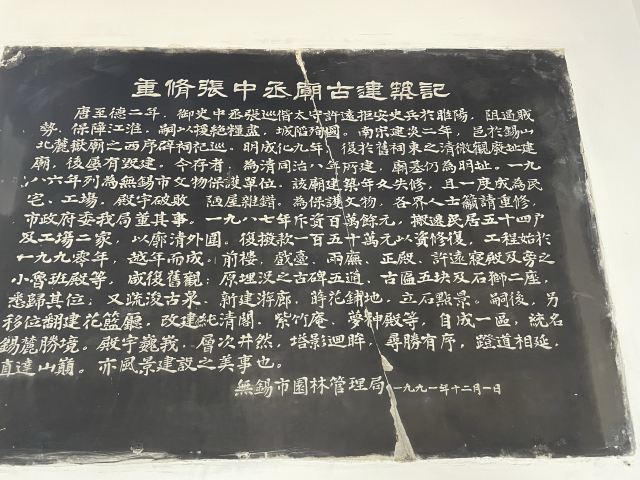 重脩張中丞廟古建築記
唐至德二年，御史中丞張巡偕太守許遠拒安史兵於睢陽，阻遏賊
勢，保障江淮，嗣以援絶糧盡，城陷殉國。南宋建炎二年，邑於錫山
北麓嶽廟之西序碑祠祀巡。明成化九年，復於舊祠東之清微觀廢址建
廟，後屢有毀建。今存者，為清同治八年所建，廟基仍為明址。一九
八六年列為無錫市文物保護單位。該廟建築年久失修，且一度成為民
宅、工場，殿宇破敗，陋屋雜錯。為保護文物，各界人士籲請重修，
市政府委我局董其事。一九八七年斥資百萬餘元，搬遷民居五十四户
及工場二家，以廓清外圍。後撥款一百五十萬元以資修復，工程始於
一九九零年，越年而成。前樓、戲臺、兩廡、正殿、許遠寢殿及旁之
小魯班殿等，咸復舊觀；原埋没之古碑五通、古匾五块及石獅二座，
悉歸其位；又疏浚古泉、新建游廊、蒔花鋪地，立石點景。嗣後，另
移位翻建花籃廳，改建純清閣、紫竹庵、夢神殿等，自成一區，統名
錫麓勝境。殿宇巍我，層次井然，塔影迴眸，尋勝有序，蹬道相延，
直達山巔。亦風景建設之美事也。
無錫市園林管理局 一九九一年十二月一日